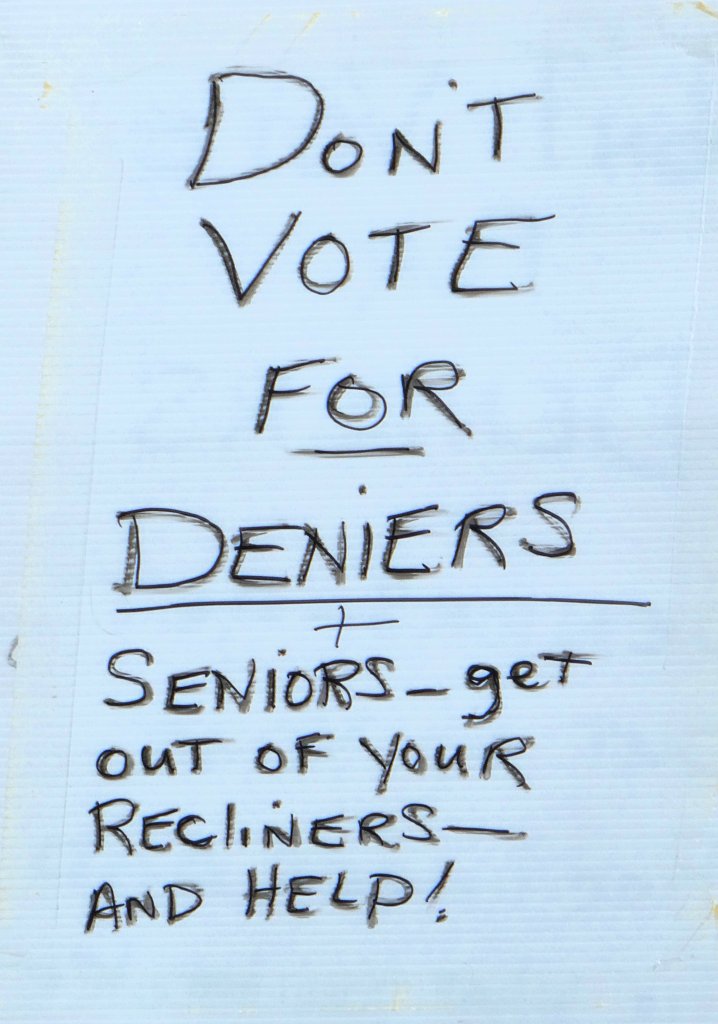 DON'T
VOTE
FOR
DENiERS
+
SENiORS - get
OUT OF YOUR
RECLiNERS -
AND HELP!